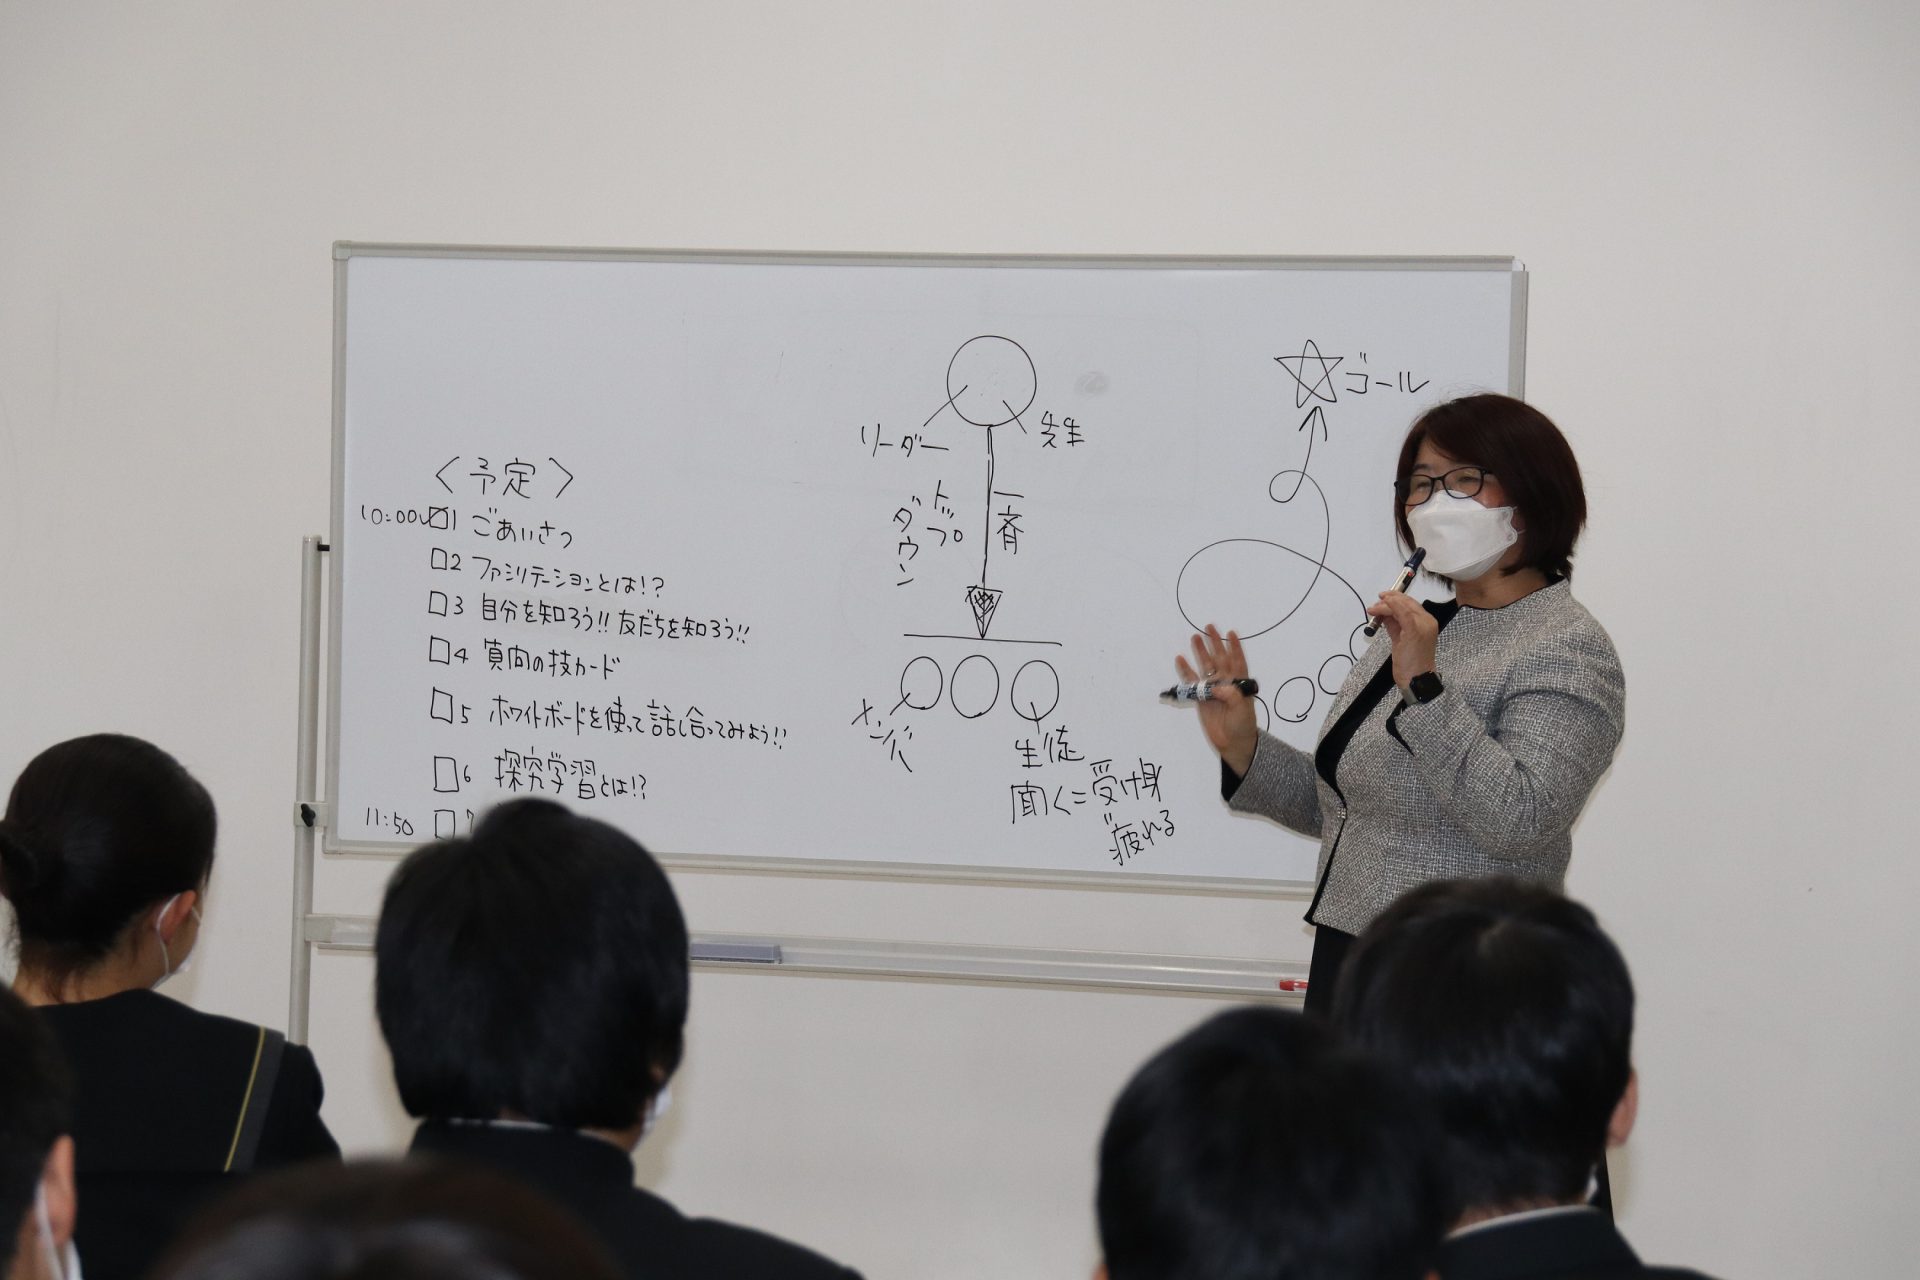 〈予定〉
10:00 1 ごあいさつ
2 ファシリテーションとは!?
3 自分を知ろう!! 友だちを知ろう!!
4 質問の技カード
5 ホワイトボードを使って話し合ってみよう!!
6 探究学習とは!?
11:50 7
リーダー
先生
トップ
ダウン
一斉
メンバー
生徒
聞く=受け身
疲れる
ゴール